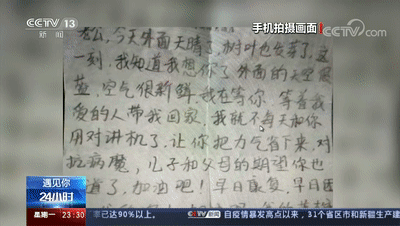 CCTV 13
新闻
手机拍摄画面
CCTV.com
老公,今天外面天晴了,树叶也发芽了,这
一刻,我知道我想你了,外面的天空很
蓝,空气很新鲜,我在等你,等着我
爱的人带我回家,我就不每天和你
用对讲机了,让你把力气省下来,对
抗病魔,儿子和父母的期望你也
道了,加油吧!早日康复,早日团
遇见你
24小时
星期一 23:30
率已达90%以上.
自疫情暴发高点以来,31个省区市和新疆生产建